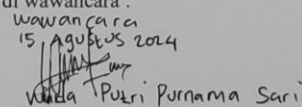 di wawancara :
wawancara
15 Agustus 2024
Putri Purnama Sari